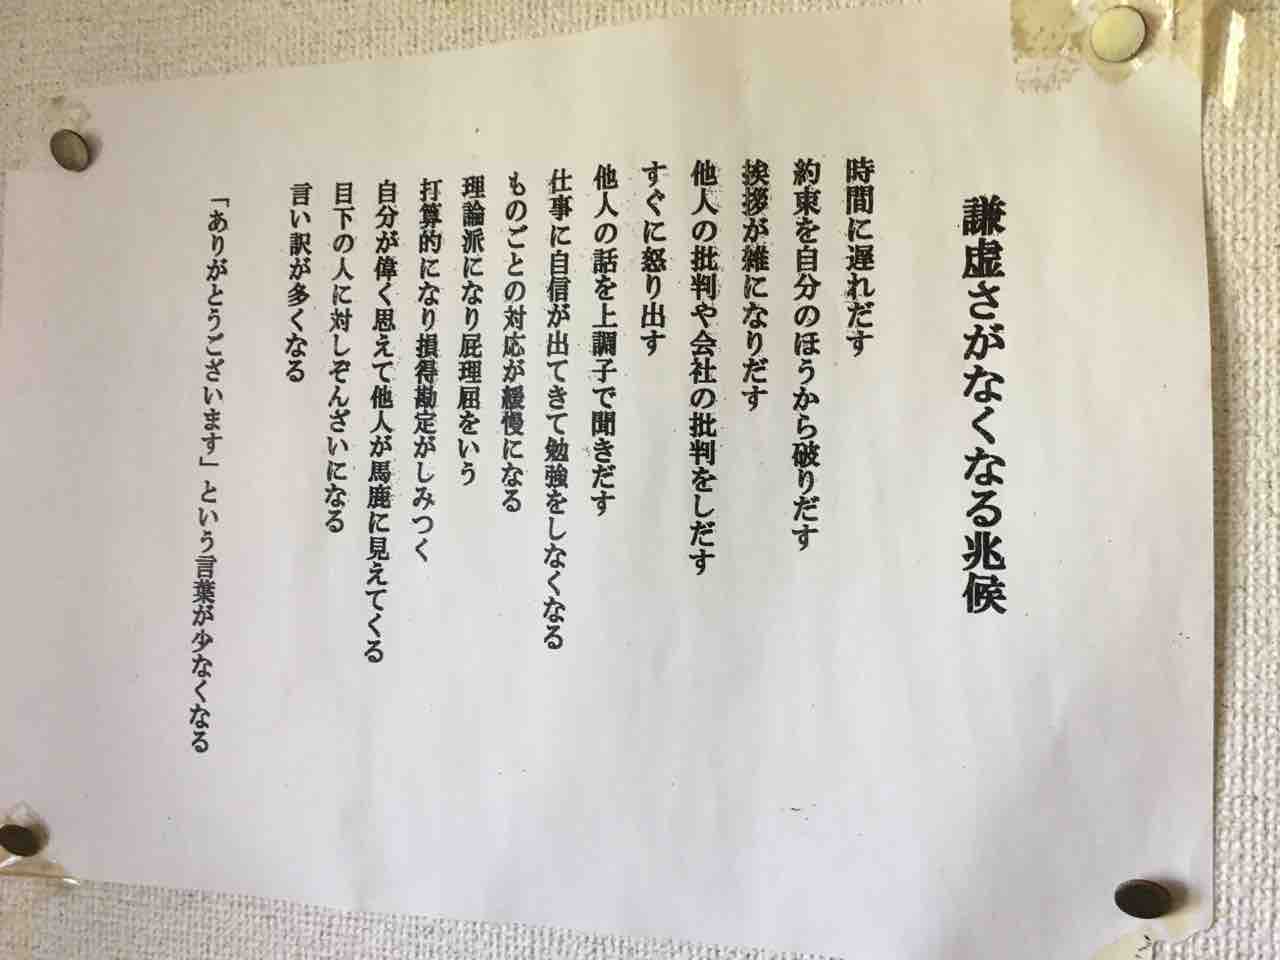 謙虚さがなくなる兆候
時間に遅れだす
約束を自分のほうから破りだす
挨拶が雑になりだす
他人の批判や会社の批判をしだす
すぐに怒り出す
他人の話を上調子で聞きだす
仕事に自信が出てきて勉強をしなくなる
ものごとの対応が緩慢になる
理論派になり屁理屈をいう
打算的になり損得勘定がしみつく
自分が偉く思えて他人が馬鹿に見えてくる
目下の人に対しぞんざいになる
言い訳が多くなる
「ありがとうございます」という言葉が少なくなる